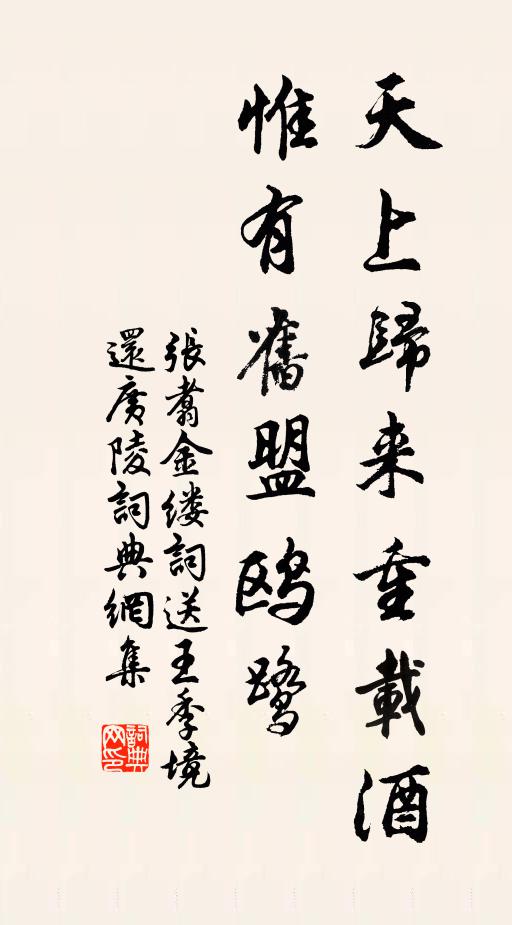 天上歸来重載酒
惟有舊盟鸥鹭
張翥金缕詞送王季境
還廣陵詞典網集
詞典网印